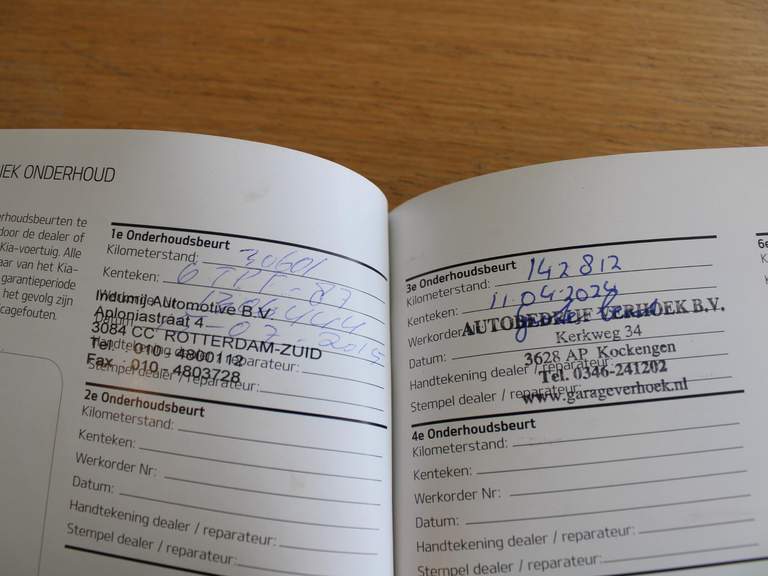 IEK ONDERHOUD
rhoudsbeurten te
door de dealer of
Kia-voertuig. Alle
aar van het Kia-
garantieperiode
het gevolg zijn
cagefouten.
1e Onderhoudsbeurt
Kilometerstand: 30601
Kenteken: 6 TPT-87
Indumij Automotive B.V.
Aploniastraat 4
3084 CC ROTTERDAM-ZUID
Tel. : 010 - 4800112
Fax : 010 - 4803728
Handtekening dealer / reparateur:
Stempel dealer / reparateur:
2e Onderhoudsbeurt
Kilometerstand:
Kenteken:
Werkorder Nr:
Datum:
Handtekening dealer / reparateur:
Stempel dealer / reparateur:
3e Onderhoudsbeurt
Kilometerstand: 142812
Kenteken: 11.04.2024
Werkorder
AUTOBEDRIJF VERHOEK B.V.
Kerkweg 34
Datum:
3628 AP Kockengen
Handtekening dealer / reparateur:
Tel. 0346-241202
Stempel dealer / reparateur:
www.garageverhoek.nl
4e Onderhoudsbeurt
Kilometerstand:
Kenteken:
Werkorder Nr:
Datum:
Handtekening dealer / reparateur:
Stempel dealer / reparateur:
6e